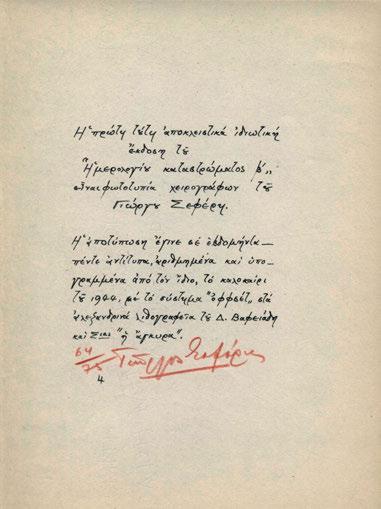 Ἡ πρώτη τούτη ἀποκλειστικά ἰδιωτική
ἔκδοση τοῦ
"Ἡμερολογίου καταστρώματος β΄"
εἶναι φωτοτυπία χειρογράφων τοῦ
Γιώργου Σεφέρη.
Ἡ ἀποτύπωση ἔγινε σέ ἑβδομήντα-
πέντε ἀντίτυπα, ἀριθμημένα καί ὑπο-
γραμμένα ἀπό τόν ἴδιο, τό καλοκαίρι
τοῦ 1944, μέ τό σύστημα "ὄφφσετ", στά
ἀλεξανδρινά λιθογραφεῖα τοῦ Δ. Βαφειάδη
καί Σιας "ἡ ἄγκυρα".
64/75 Γιῶργος Σεφέρης
4